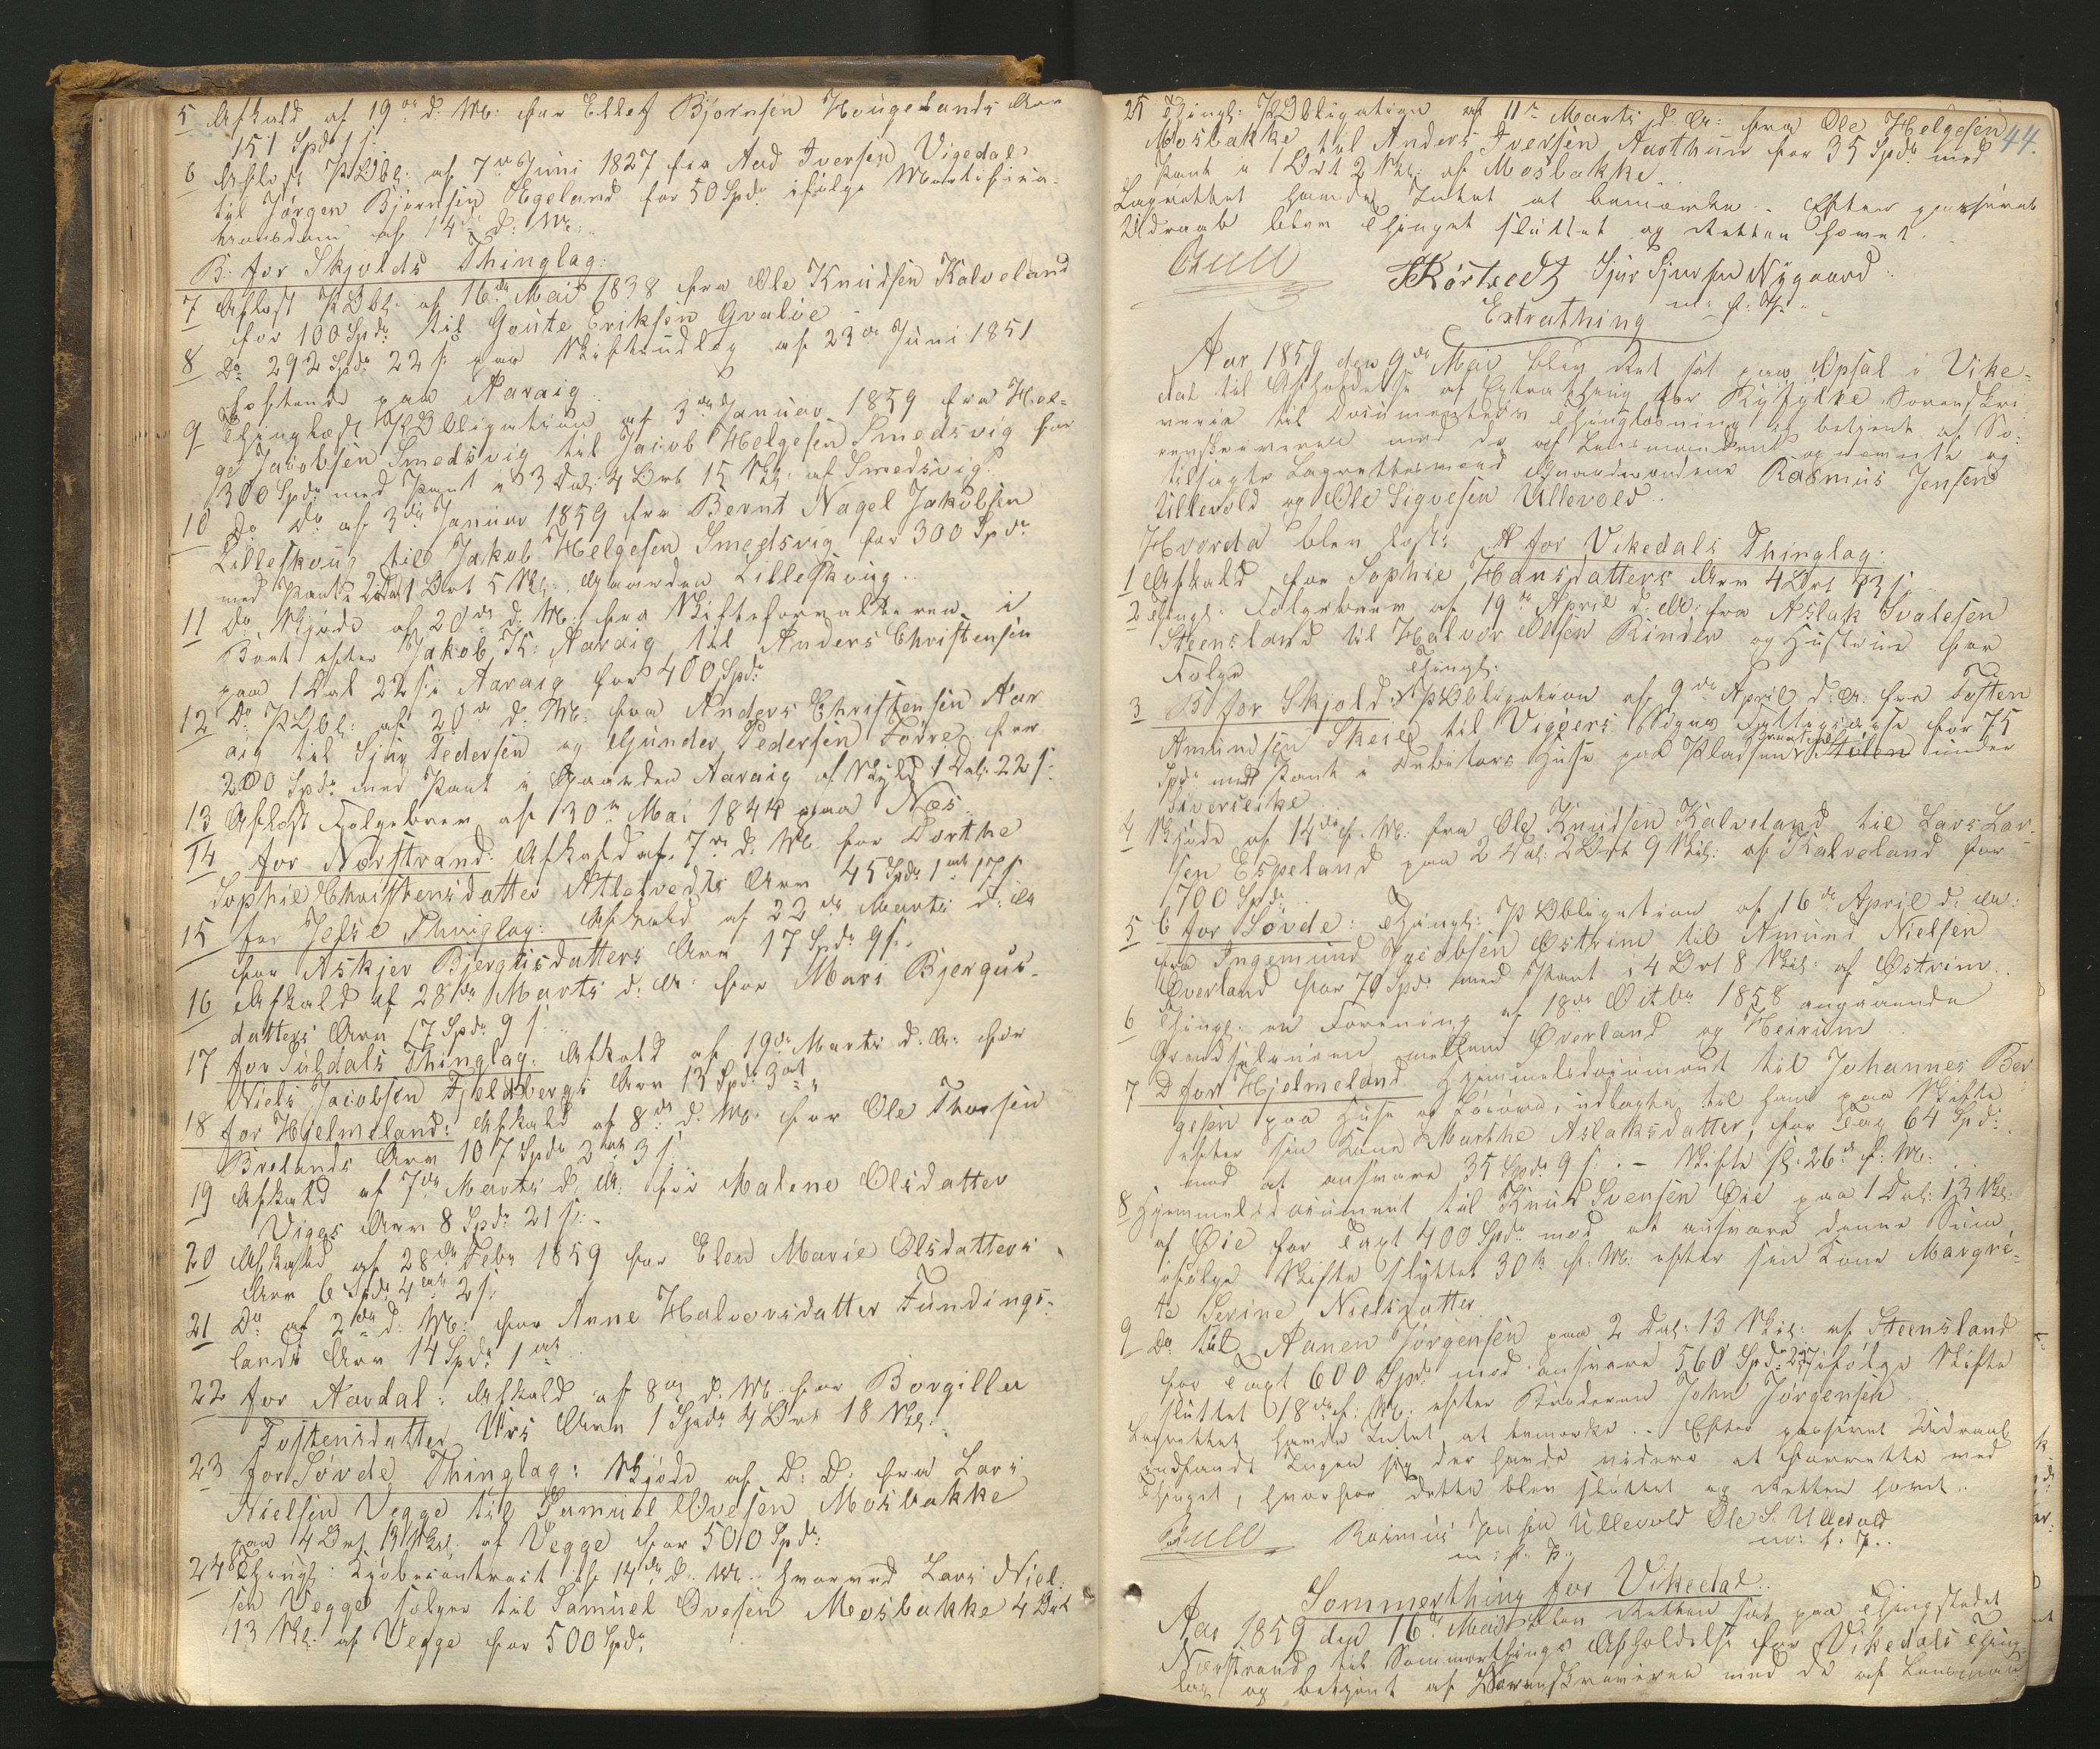 5 Afkald af 19de d. M: for Ellef Bjørnsen Hougelands Arv
151 Spd. 1 s:
6 Aflyst P.Obl: af 7de Juni 1827 fra Aad Iversen Vigedal
til Jørgen Bjørnsen Egeland for 50 Spd. ifølge Mortifica-
tionsdom af 14de d. M:
B: for Skjolds Thinglag:
7 Aflyst P.Obl: af 16de Mai 1838 fra Ole Knudsen Kalveland
for 100 Spd. til Goute Eriksen Gvaløe
8 Do 292 Spd. 22 s: paa Skifteudlæg af 23de Juni 1851
heftende paa Aaraig
9 Thinglæst P.Obligation af 3de Januar 1859 fra Hel-
ge Jacobsen Smedsvig til Jacob Helgesen Smedsvig for
300 Spd. med Pant i 3 Dal: 4 Ort 15 Skl: af Smedsvig
10 Do Do af 3de Januar 1859 fra Bernt Nagel Jakobsen
Lilleskoug til Jakob Helgesen Smedsvig for 300 Spd.
med Pant i 2 Dal 1 Ort 5 Skl: i Gaarden Lilleskoug
11 Do Skjøde af 20de d. M: fra Skifteforvalteren i
Boet efter Jakob K. Aaraig til Anders Christensen
paa 1 Dal 22 s: i Aaraig for 400 Spd.
12 Do P.Obl: af 20de d. M: fra Anders Christensen Aar
aig til Sjur Pedersen og Gunder Pedersen Førre for
200 Spd. med Pant i Gaarden Aaraig af Skyld 1 Dal: 22 s:
13 Aflyst Følgebrev af 30te Mai 1844 paa Næs
14 for Nærstrand: Afkald af 7de d. M: for Dorthe
Sophie Christensdatter Atletvedts Arv 45 Spd. 1 ort 17 s
15 for Jelse Thinglag: Afkald af 22de Marts d. A:
for Askjer Bjergusdatters Arv 17 Spd. 9 s:
16 Afkald af 28de Marts d. A: for Mari Bjergus-
datters Arv 17 Spd. 9 s:
17 for Suldals Thinglag: Afkald af 19de Marts d. A: for
Niels Jacobsen Fjeldbergs Arv 13 Spd. 3 ort
18 for Hjelmeland: Afkald af 8de d. M: for Ole Thorsen
Brelands Arv 107 Spd. 2 ort 3 s.
19 Afkald af 7de Marts d. A: for Malene Olsdatter
Vigas Arv 8 Spd. 21 s:
20 Afkald af 28de Febr 1859 for Elen Marie Olsdatters
Arv 6 Spd. 4 ort 2 s:
21 Do af 2de d. M: for Anne Halvorsdatter Fundings-
lands Arv 14 Spd. 1 ort
22 for Aardal: Afkald af 8de d. M: for Borgille
Tostensdatter Urs Arv 1 Spd. 4 Ort 18 Skl:
23 for Søvde Thinglag: Skjøde af D: D: fra Lars
Nielsen Vegge til Samuel Ovesen Mosbakke
paa 4 Ort 13 Skl. af Vegge for 500 Spd.
24 Thingl: Kjøbecontract af 14de d. M: hvorved Lars Niel-
sen Vegge sælger til Samuel Ovesen Mosbakke 4 Ort
13 Skl: af Vegge for 500 Spd.
44.
25 Thingl: P.Obligation af 11te Marts d. A: fra Ole Helgesen
Mosbakke til Anders Iversen Austhun for 35 Spd. med
Pant i 1 Ort 2 Skl: af Mosbakke
Lagrettet havde Intet at bemærke. Efter passeret
Udraab blev Thinget sluttet og Retten hævet.
Sjur Sjursen Nygaard
m. f. P.
Extrathing
Aar 1859 den 9de Mai blev Ret sat paa Opsal i Vike-
dal til Afholdelse af Extrathing for Ryfylke Sorenskri
verie til Documenters Thinglæsning og betjent af So-
renskriveren med de af Lensmanden opnævnte og
tilsagte Lagrettesmænd Gaardmændene Rasmus Jensen
Ullevold og Ole Sigvesen Ullevold.
Hvorda blev læst: A for Vikedals Thinglag:
1 Afkald for Sophie Hansdatters Arv 4 Ort 13 s.
2 Thingl: Følgebrev af 19de April d. A. fra Aslak Svalesen
Steensland til Halvor Olsen Rinden og Hustrue for
Følge
3 B for Skjold: Thingl: P.Obligation af 9de April d. A. fra Tosten
Amundsen Skeie til Viggers Sogns Fattigcasse for 75
Spd. med Pant i Debitors Huse paa Pladsen Stølen under
4 Skjøde af 14de f. M: fra Ole Knudsen Kalveland til Lars Lar-
sen Espeland paa 2 Dal: 2 Ort 9 Skl: af Kalveland for
1700 Spd:
5 C for Søvde: Thingl: P.Obligation af 16de April d. A:
fra Ingemund Jacobsen Østrim til Amund Nielsen
Øverland for 70 Spd. med Pant i 4 Ort 8 Skl: af Østrim.
6 Thingl: en Forening af 18de Octbr 1858 angaaende
mellem Øverland og Heirum
7 D for Hjelmeland Hjemmelsdocument til Johannes Ber
gesen paa Huse og Løsøre, udlagte til ham paa Skifte
efter sin Kone Marthe Aslaksdatter, for Taxt 64 Spd:
mod at ansvare 35 Spd. 9 s: - Skifte sl. 26de f. M:
8 Hjemmelsdocument til Knud Svensen Øie paa 1 Dal: 13 Skl:
af Øie for Taxt 400 Spd. mod at ansvare denne Sum
ifølge Skifte sluttet 30te f. M: efter sin Kone Margre-
te Serine Nielsdatter
9 Do til Aanen Jørgensen paa 2 Dal: 13 Skl: af Steensland
for Taxt 600 Spd. mod ansvare 560 Spd. ifølge Skifte
sluttet 18de f. M: efter Broderen John Jørgensen
Lagrettet havde Intet at bemærke. Efter passeret Udraab
indfandt Ingen sig der havde videre at forrette ved
Thinget, hvorfor dette blev sluttet og Retten hævet.
Rasmus Jensen Ullevold Ole S. Ullevold
m: f: P: m: f. P.
Sommerthing for Vikedal.
Aar 1859 den 16de Mai blev Retten sat paa Thingstedet
Nærstrand til Sommerthings Afholdelse for Vikedals Thing
lag og betjent af Sorenskriveren med de af Lensmand